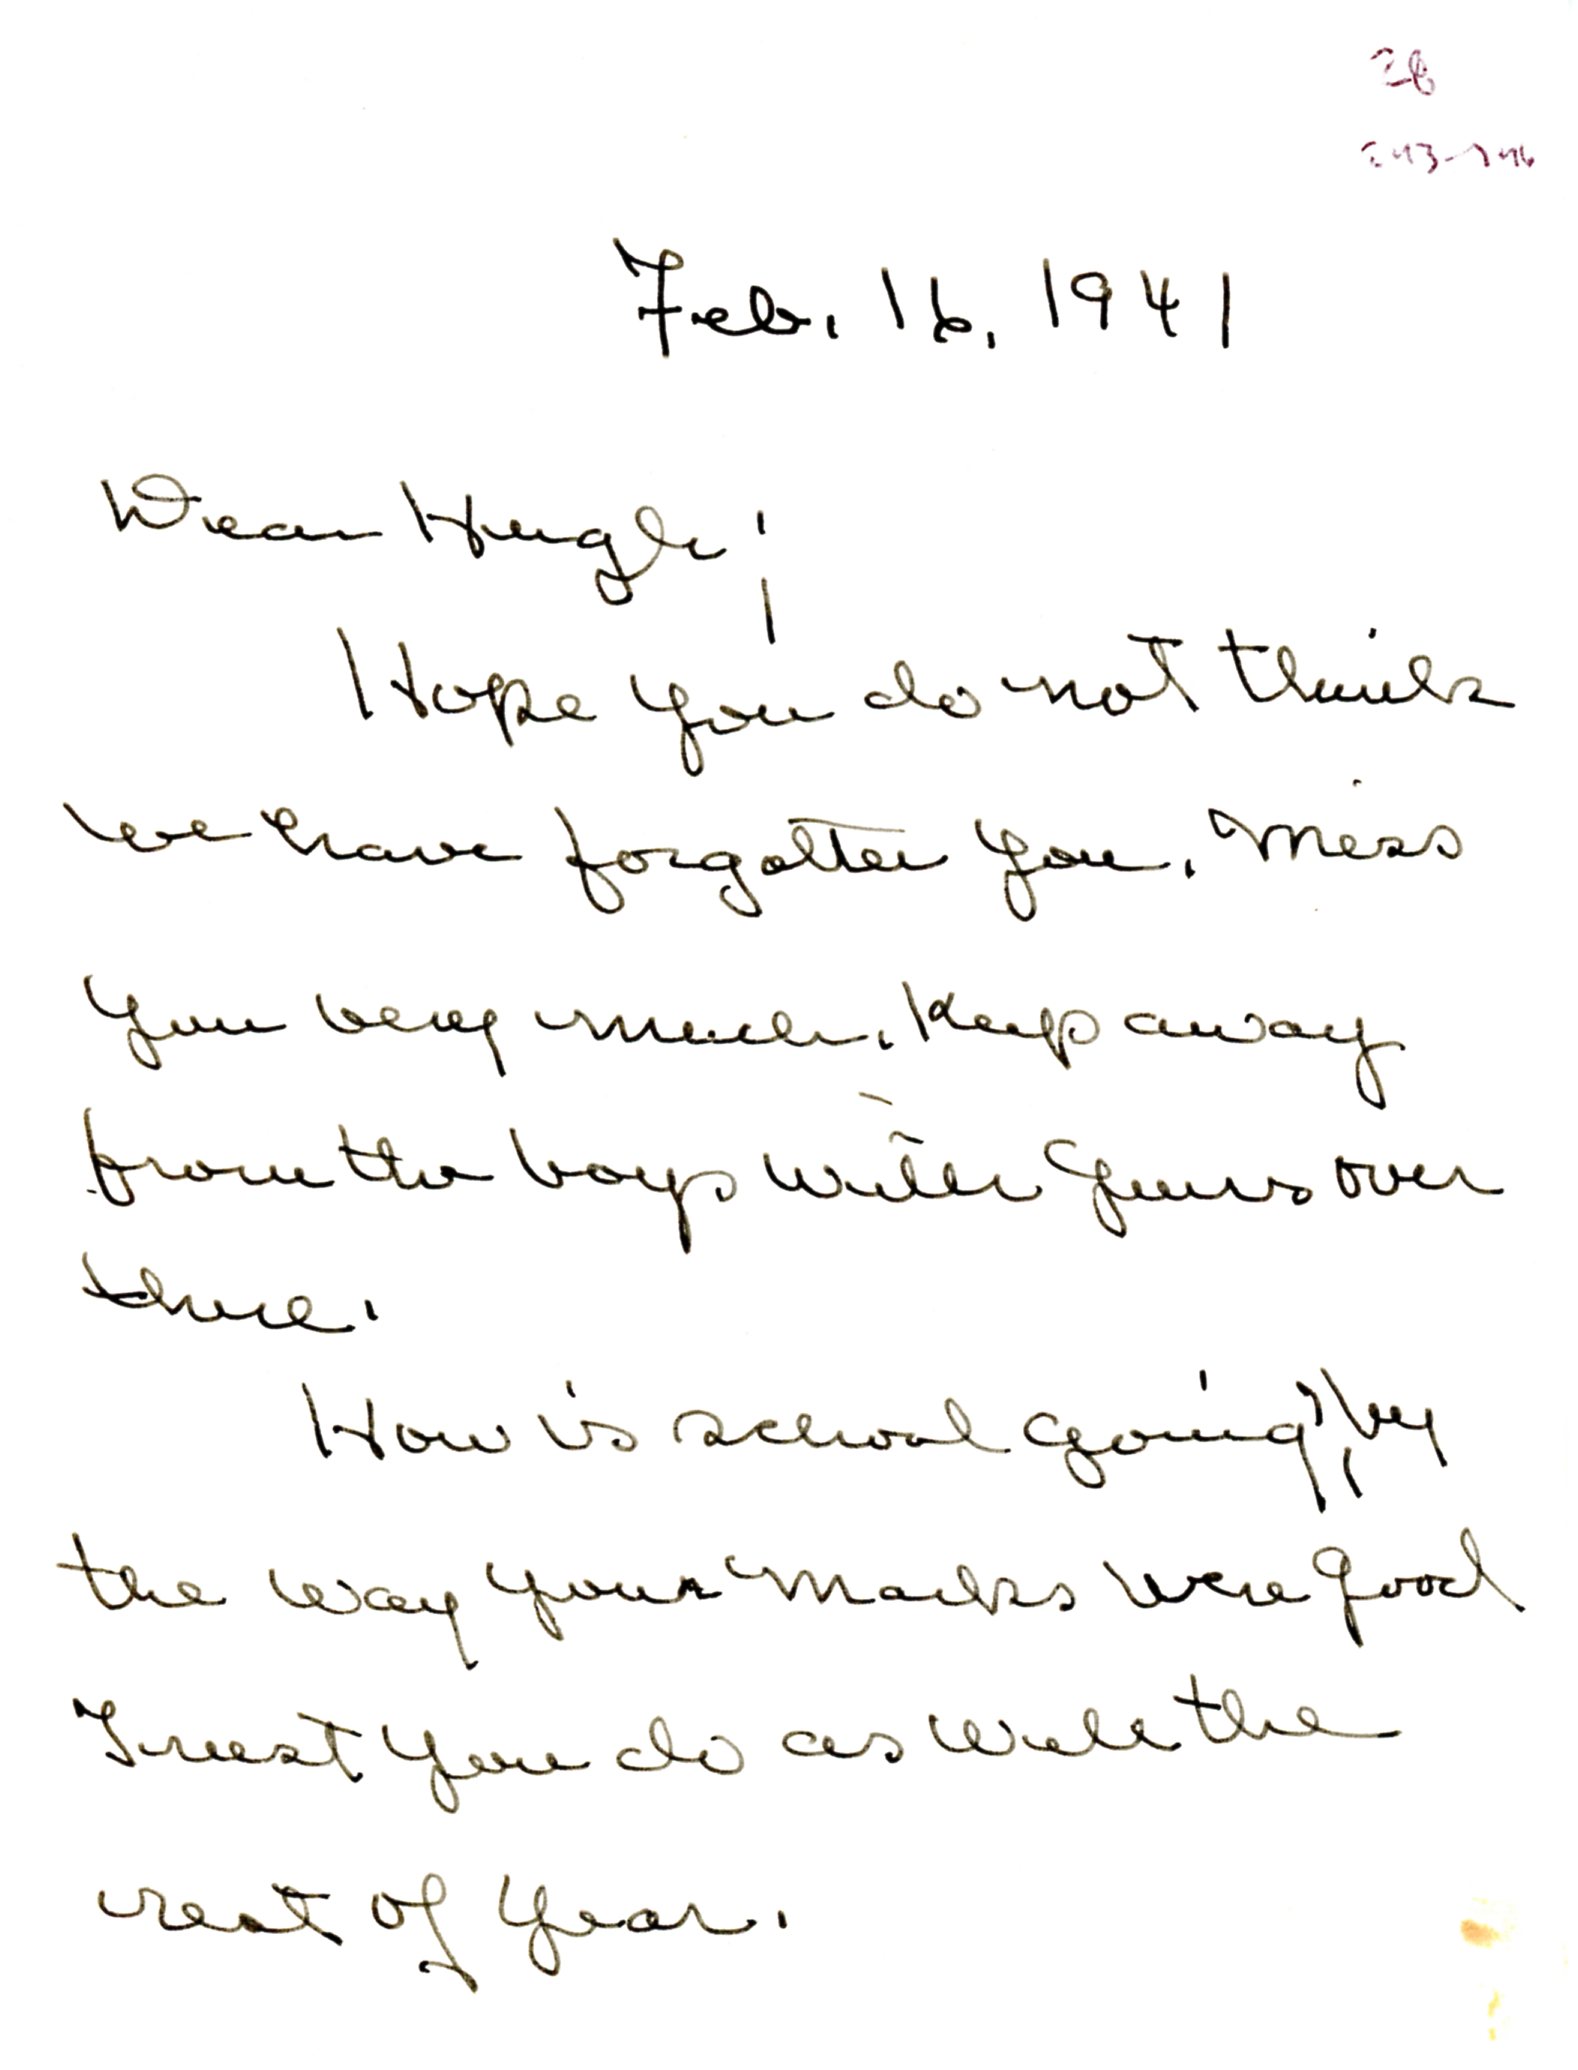 28
Feb. 16, 1941
Dear Hugh;
Hope you do not think
we have forgotten you. Miss
you very much. Keep away
from the boys with guns over
there.
How is school going, by
the way your marks were good
Trust you do as well the
rest of year.